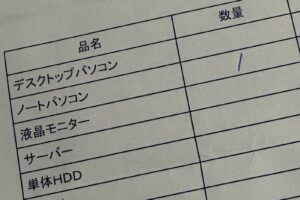 品名 数量
デスクトップパソコン 1
ノートパソコン
液晶モニター
サーバー
単体HDD